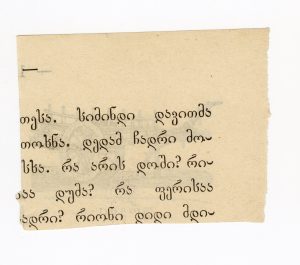 თესა. სიმინდი დავითმა
თოხნა. დედამ ჩადრი მო-
სხა. რა არის დოში? რი-
აა დუმა? რა ფერისაა
ადრი? რიონი დიდი მდი-